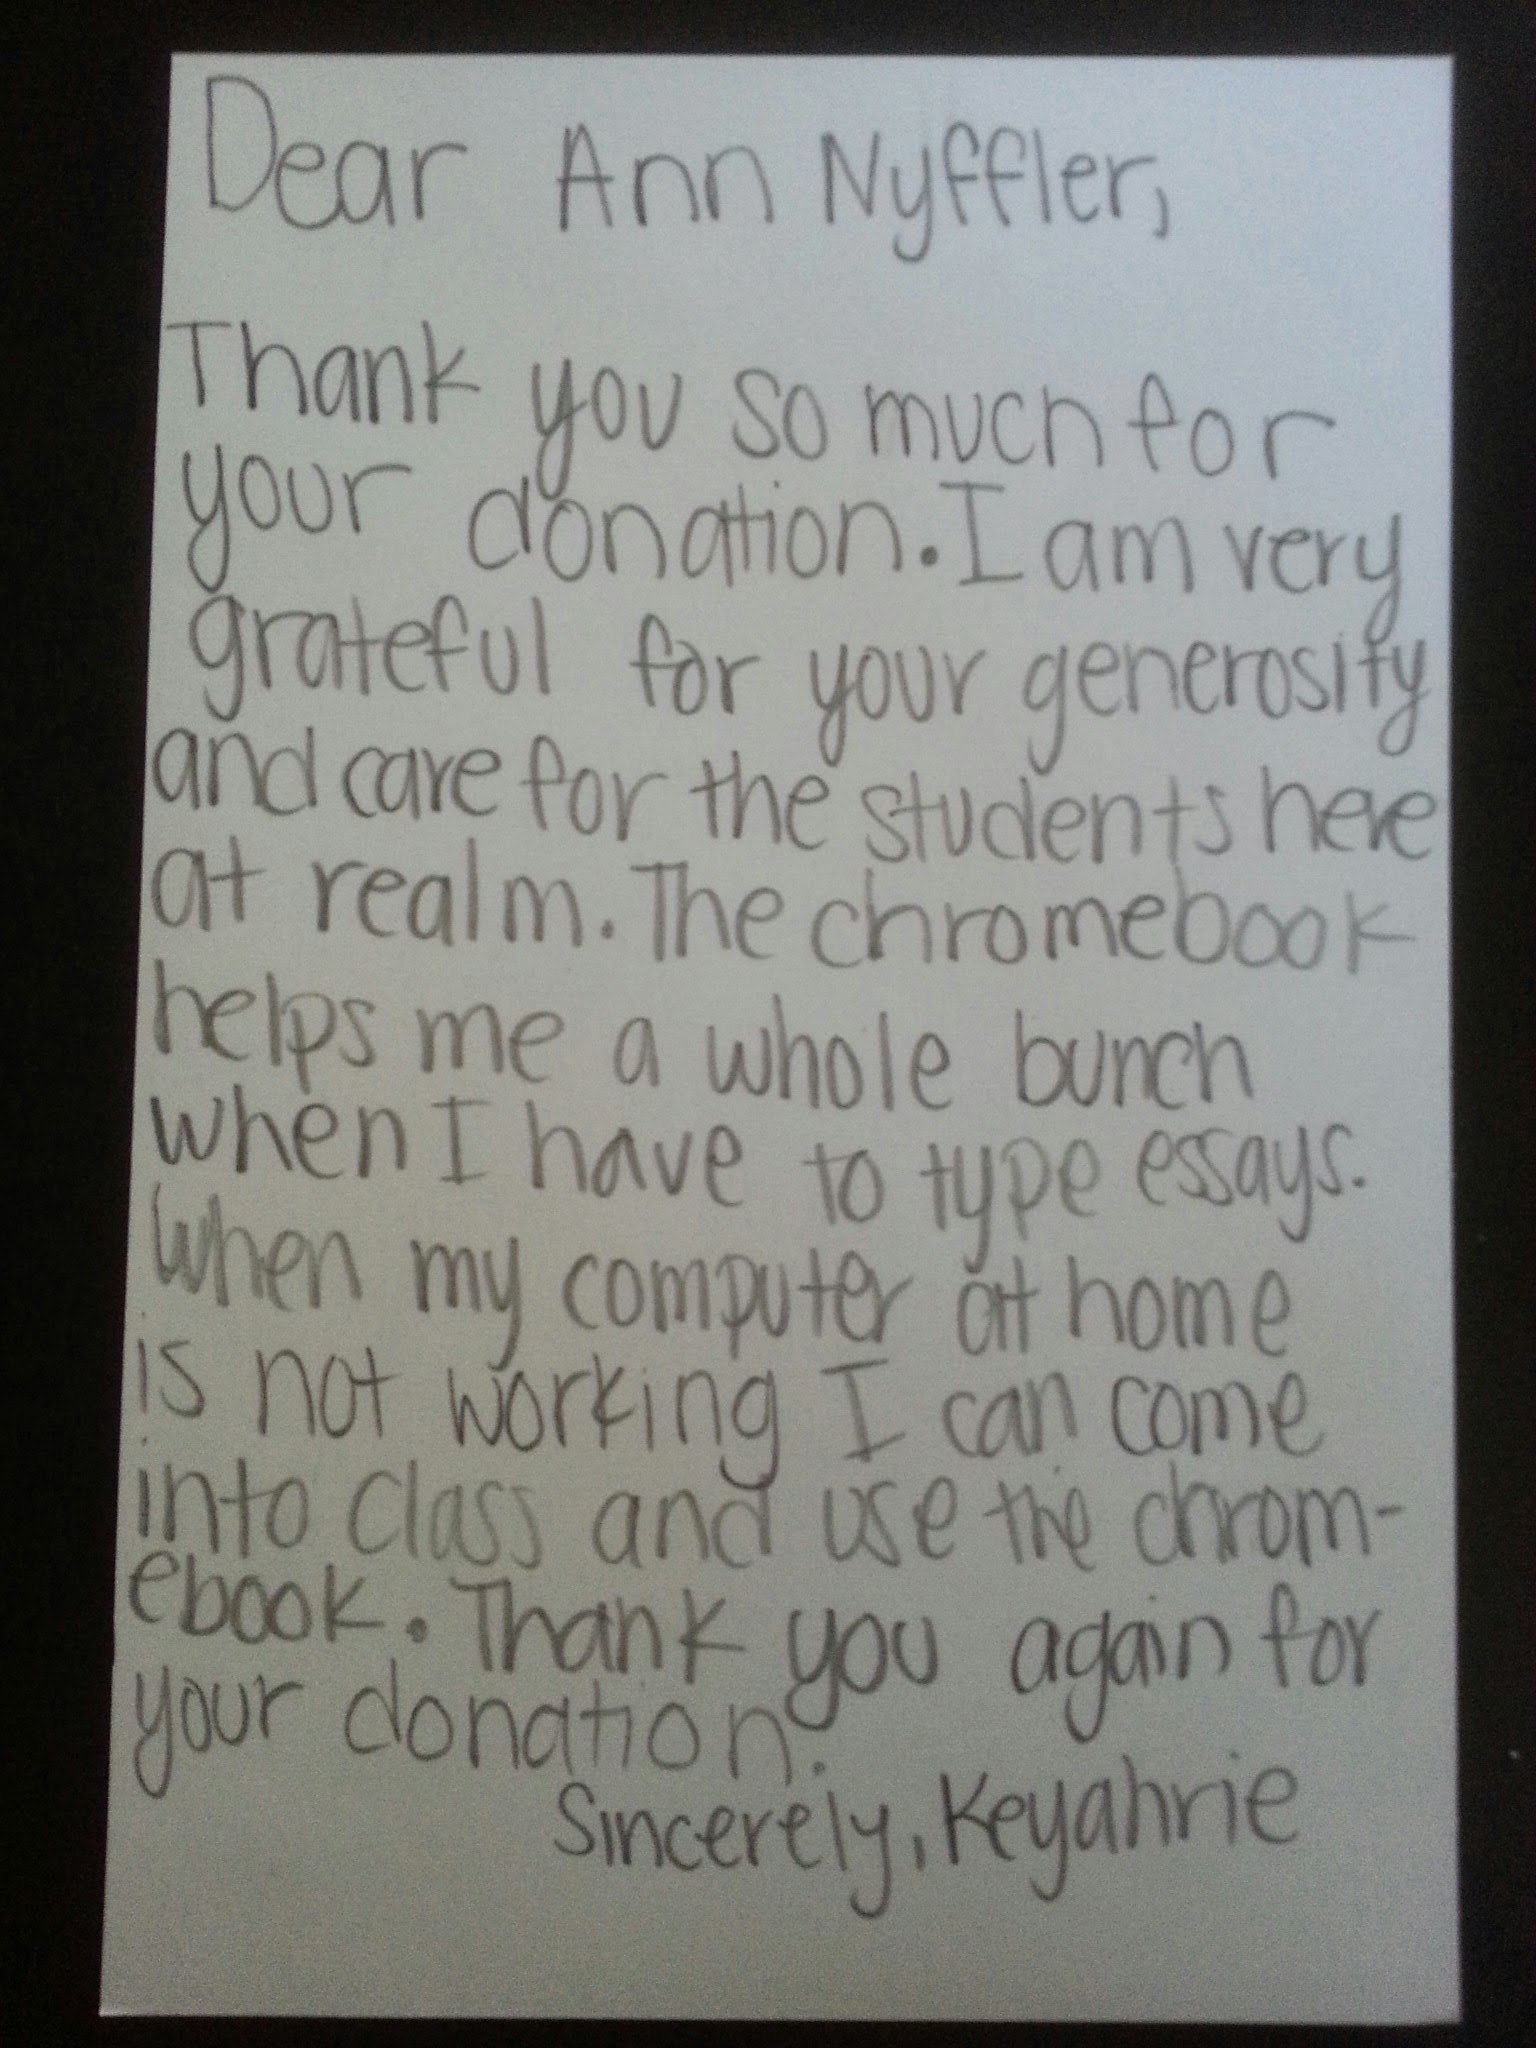 Dear Ann Nyffler,
Thank you so much for
your donation. I am very
grateful for your generosity
and care for the students here
at realm. The chromebook
helps me a whole bunch
when I have to type essays.
When my computer at home
is not working I can come
into class and use the chrom-
ebook. Thank you again for
your donation.
Sincerely, Keyahrie